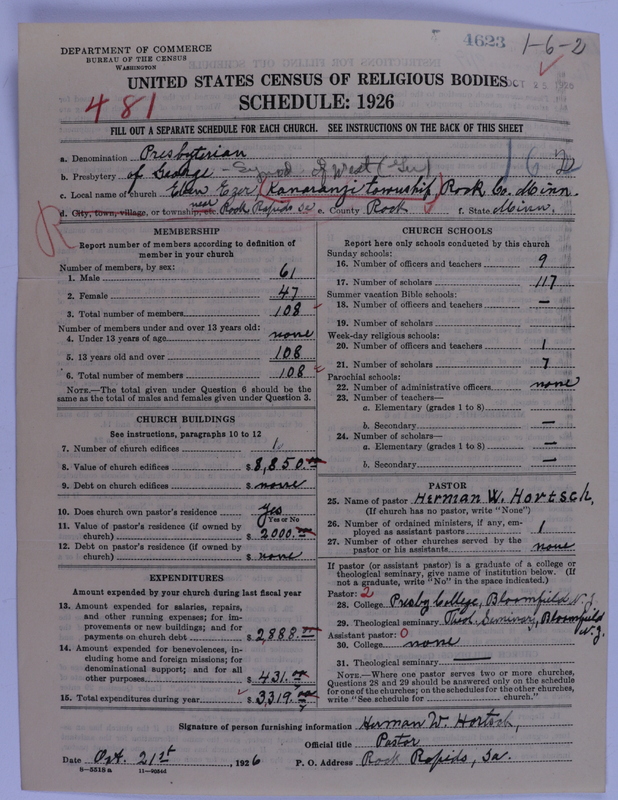 4623 1-6-2
DEPARTMENT OF COMMERCE
BUREAU OF THE CENSUS
WASHINGTON
UNITED STATES CENSUS OF RELIGIOUS BODIES
OCT 25 1926
SCHEDULE: 1926
481
FILL OUT A SEPARATE SCHEDULE FOR EACH CHURCH. SEE INSTRUCTIONS ON THE BACK OF THIS SHEET
a. Denomination Presbyterian
b. Presbytery of George - Synod of West (Ger)
c. Local name of church Eben Ezer, Kanaranzi township, Rock Co. Minn.
d. City, town, village, or township, etc. near Rock Rapids Ia e. County Rock f. State Minn.
R
MEMBERSHIP
Report number of members according to definition of
member in your church
Number of members, by sex:
1. Male 61
2. Female 47
3. Total number of members 108
Number of members under and over 13 years old:
4. Under 13 years of age none
5. 13 years old and over 108
6. Total number of members 108
NOTE.—The total given under Question 6 should be the
same as the total of males and females given under Question 3.
CHURCH BUILDINGS
See instructions, paragraphs 10 to 12
7. Number of church edifices 1
8. Value of church edifices $ 8,850.00
9. Debt on church edifices $ none
10. Does church own pastor's residence yes
Yes or No
11. Value of pastor's residence (if owned by
church) $ 2000.00
12. Debt on pastor's residence (if owned by
church) $ none
EXPENDITURES
Amount expended by your church during last fiscal year
13. Amount expended for salaries, repairs,
and other running expenses; for im-
provements or new buildings; and for
payments on church debt $ 2,888.
14. Amount expended for benevolences, in-
cluding home and foreign missions; for
denominational support; and for all
other purposes $ 431.
15. Total expenditures during year $ 3,319.
CHURCH SCHOOLS
Report here only schools conducted by this church
Sunday schools:
16. Number of officers and teachers 9
17. Number of scholars 117
Summer vacation Bible schools:
18. Number of officers and teachers —
19. Number of scholars
Week-day religious schools:
20. Number of officers and teachers 1
21. Number of scholars 7
Parochial schools:
22. Number of administrative officers none
23. Number of teachers—
a. Elementary (grades 1 to 8)
b. Secondary —
24. Number of scholars—
a. Elementary (grades 1 to 8) —
b. Secondary —
PASTOR
25. Name of pastor Herman W. Hortsch,
(If church has no pastor, write "None")
26. Number of ordained ministers, if any, em-
ployed as assistant pastors 1
27. Number of other churches served by the
pastor or his assistants none
If pastor (or assistant pastor) is a graduate of a college or
theological seminary, give name of institution below. (If
not a graduate, write "No" in the space indicated.)
Pastor: 2
28. College Presby College, Bloomfield N.J.
29. Theological seminary Theol. Seminary, Bloomfield N.J.
Assistant pastor: 0
30. College none
31. Theological seminary —
NOTE.—Where one pastor serves two or more churches,
Questions 28 and 29 should be answered only on the schedule
for one of the churches; on the schedules for the other churches,
write "See schedule for church."
Signature of person furnishing information Herman W. Hortsch,
Official title Pastor
Date Oct. 21st, 1926 P. O. Address Rock Rapids, Ia.
8-5518a 11-9054d